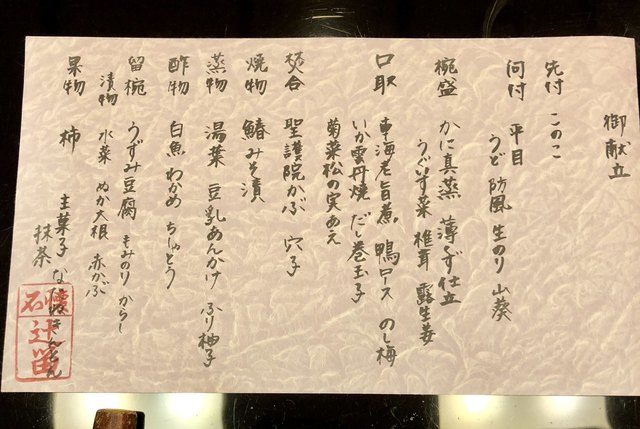 御献立
先付 このこ
向付 平目
うど 防風 生のり 山葵
椀盛 かに真蒸 薄くず仕立
うぐいす菜 椎茸 露生姜
口取 車海老旨煮 鴨ロース のし梅
いか雲丹焼 だし巻玉子
菊菜松の実あえ
焚合 聖護院かぶ 穴子
焼物 鰆みそ漬
蒸物 湯葉 豆乳あんかけ ふり柚子
酢物 白魚 わかめ ちり酢
留椀 うずみ豆腐 もみのり からし
漬物 水菜 ぬか大根 赤かぶ
果物 柿
主菓子 なたねきんとん
抹茶
辻留